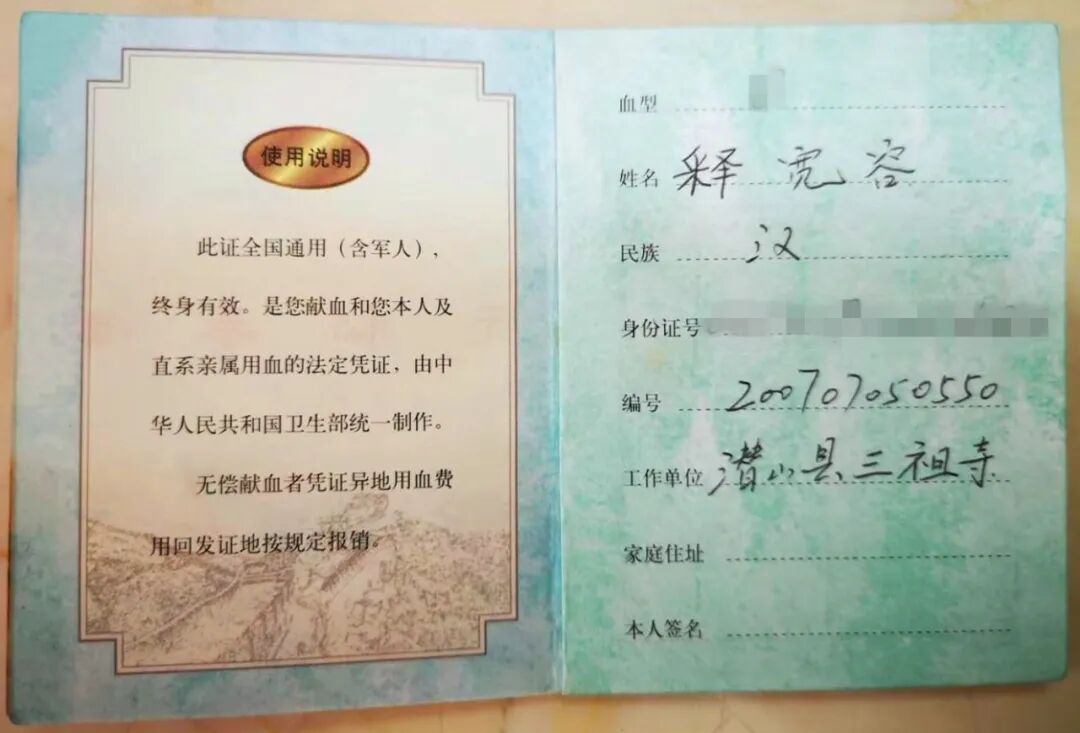 使用说明
此证全国通用（含军人），
终身有效。是您献血和您本人及
直系亲属用血的法定凭证，由中
华人民共和国卫生部统一制作。
无偿献血者凭证异地用血费
用回发证地按规定报销。
血型
姓名 释宽容
民族 汉
身份证号
编号 200707050550
工作单位 潜山县三祖寺
家庭住址
本人签名